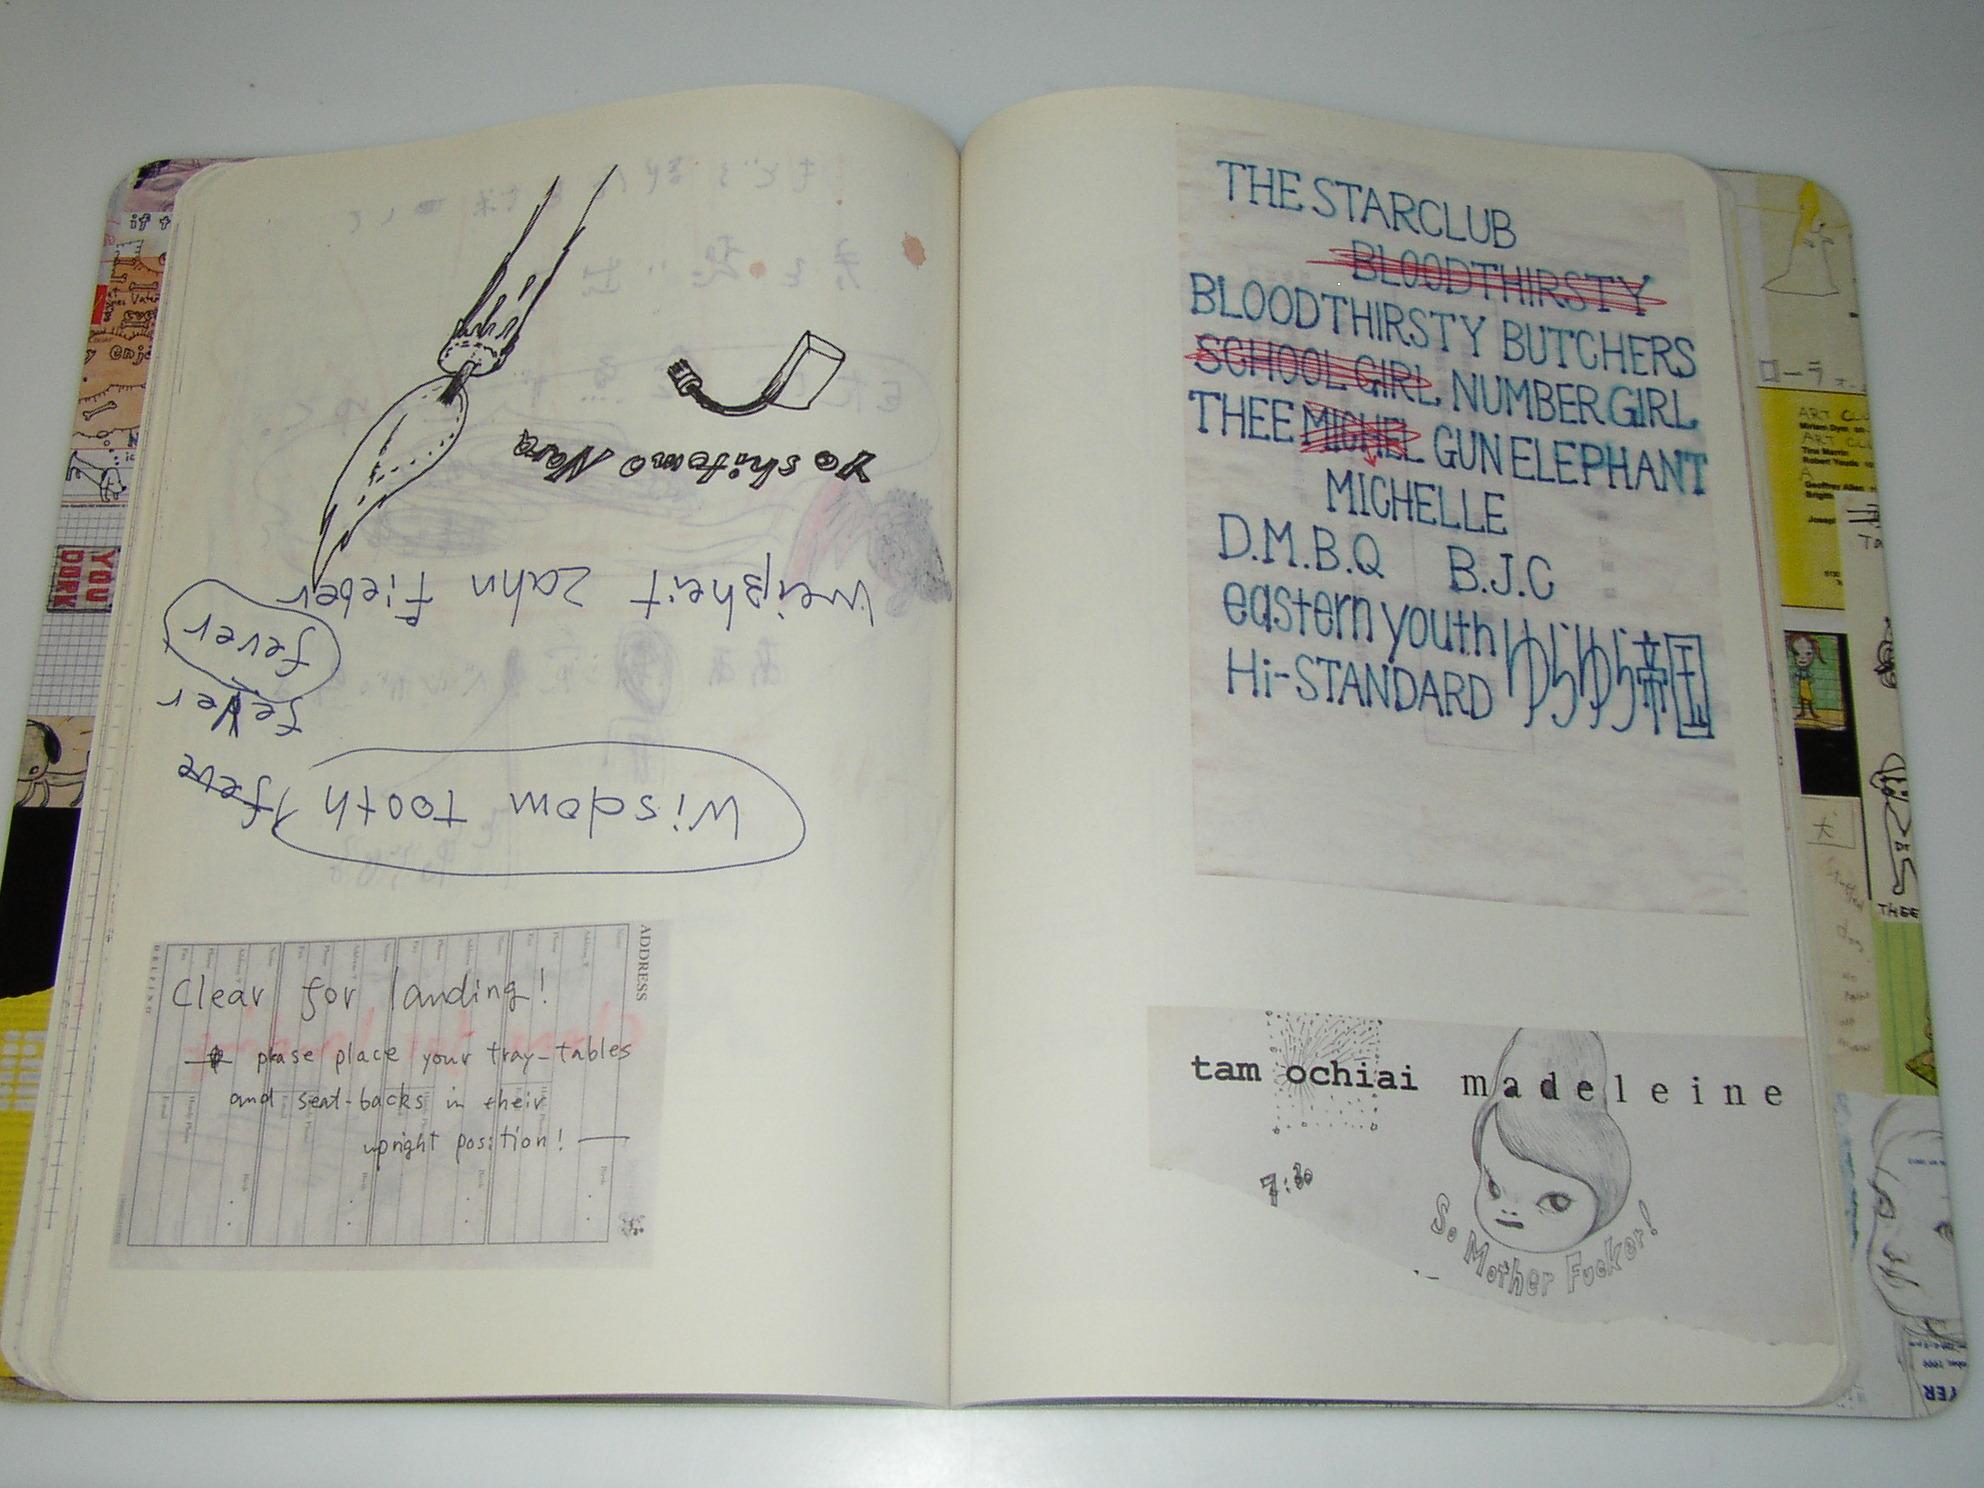 Yoshitomo Nara
Weißheit Zahn Fieber
fever
feVer
feve
Wisdom tooth
ADDRESS
Clear for landing!
please place your tray-tables
and seat-backs in their
upright position!
THE STARCLUB
BLOODTHIRSTY
BLOODTHIRSTY BUTCHERS
SCHOOL GIRL NUMBER GIRL
THEE MICHEL GUN ELEPHANT
MICHELLE
D.M.B.Q B.J.C
eastern youth ゆらゆら帝国
Hi-STANDARD
tam ochiai madeleine
7:30
So Mother Fucker!
if t
enjo
YOU
DORK
ローラ
ART CL
犬
THEE